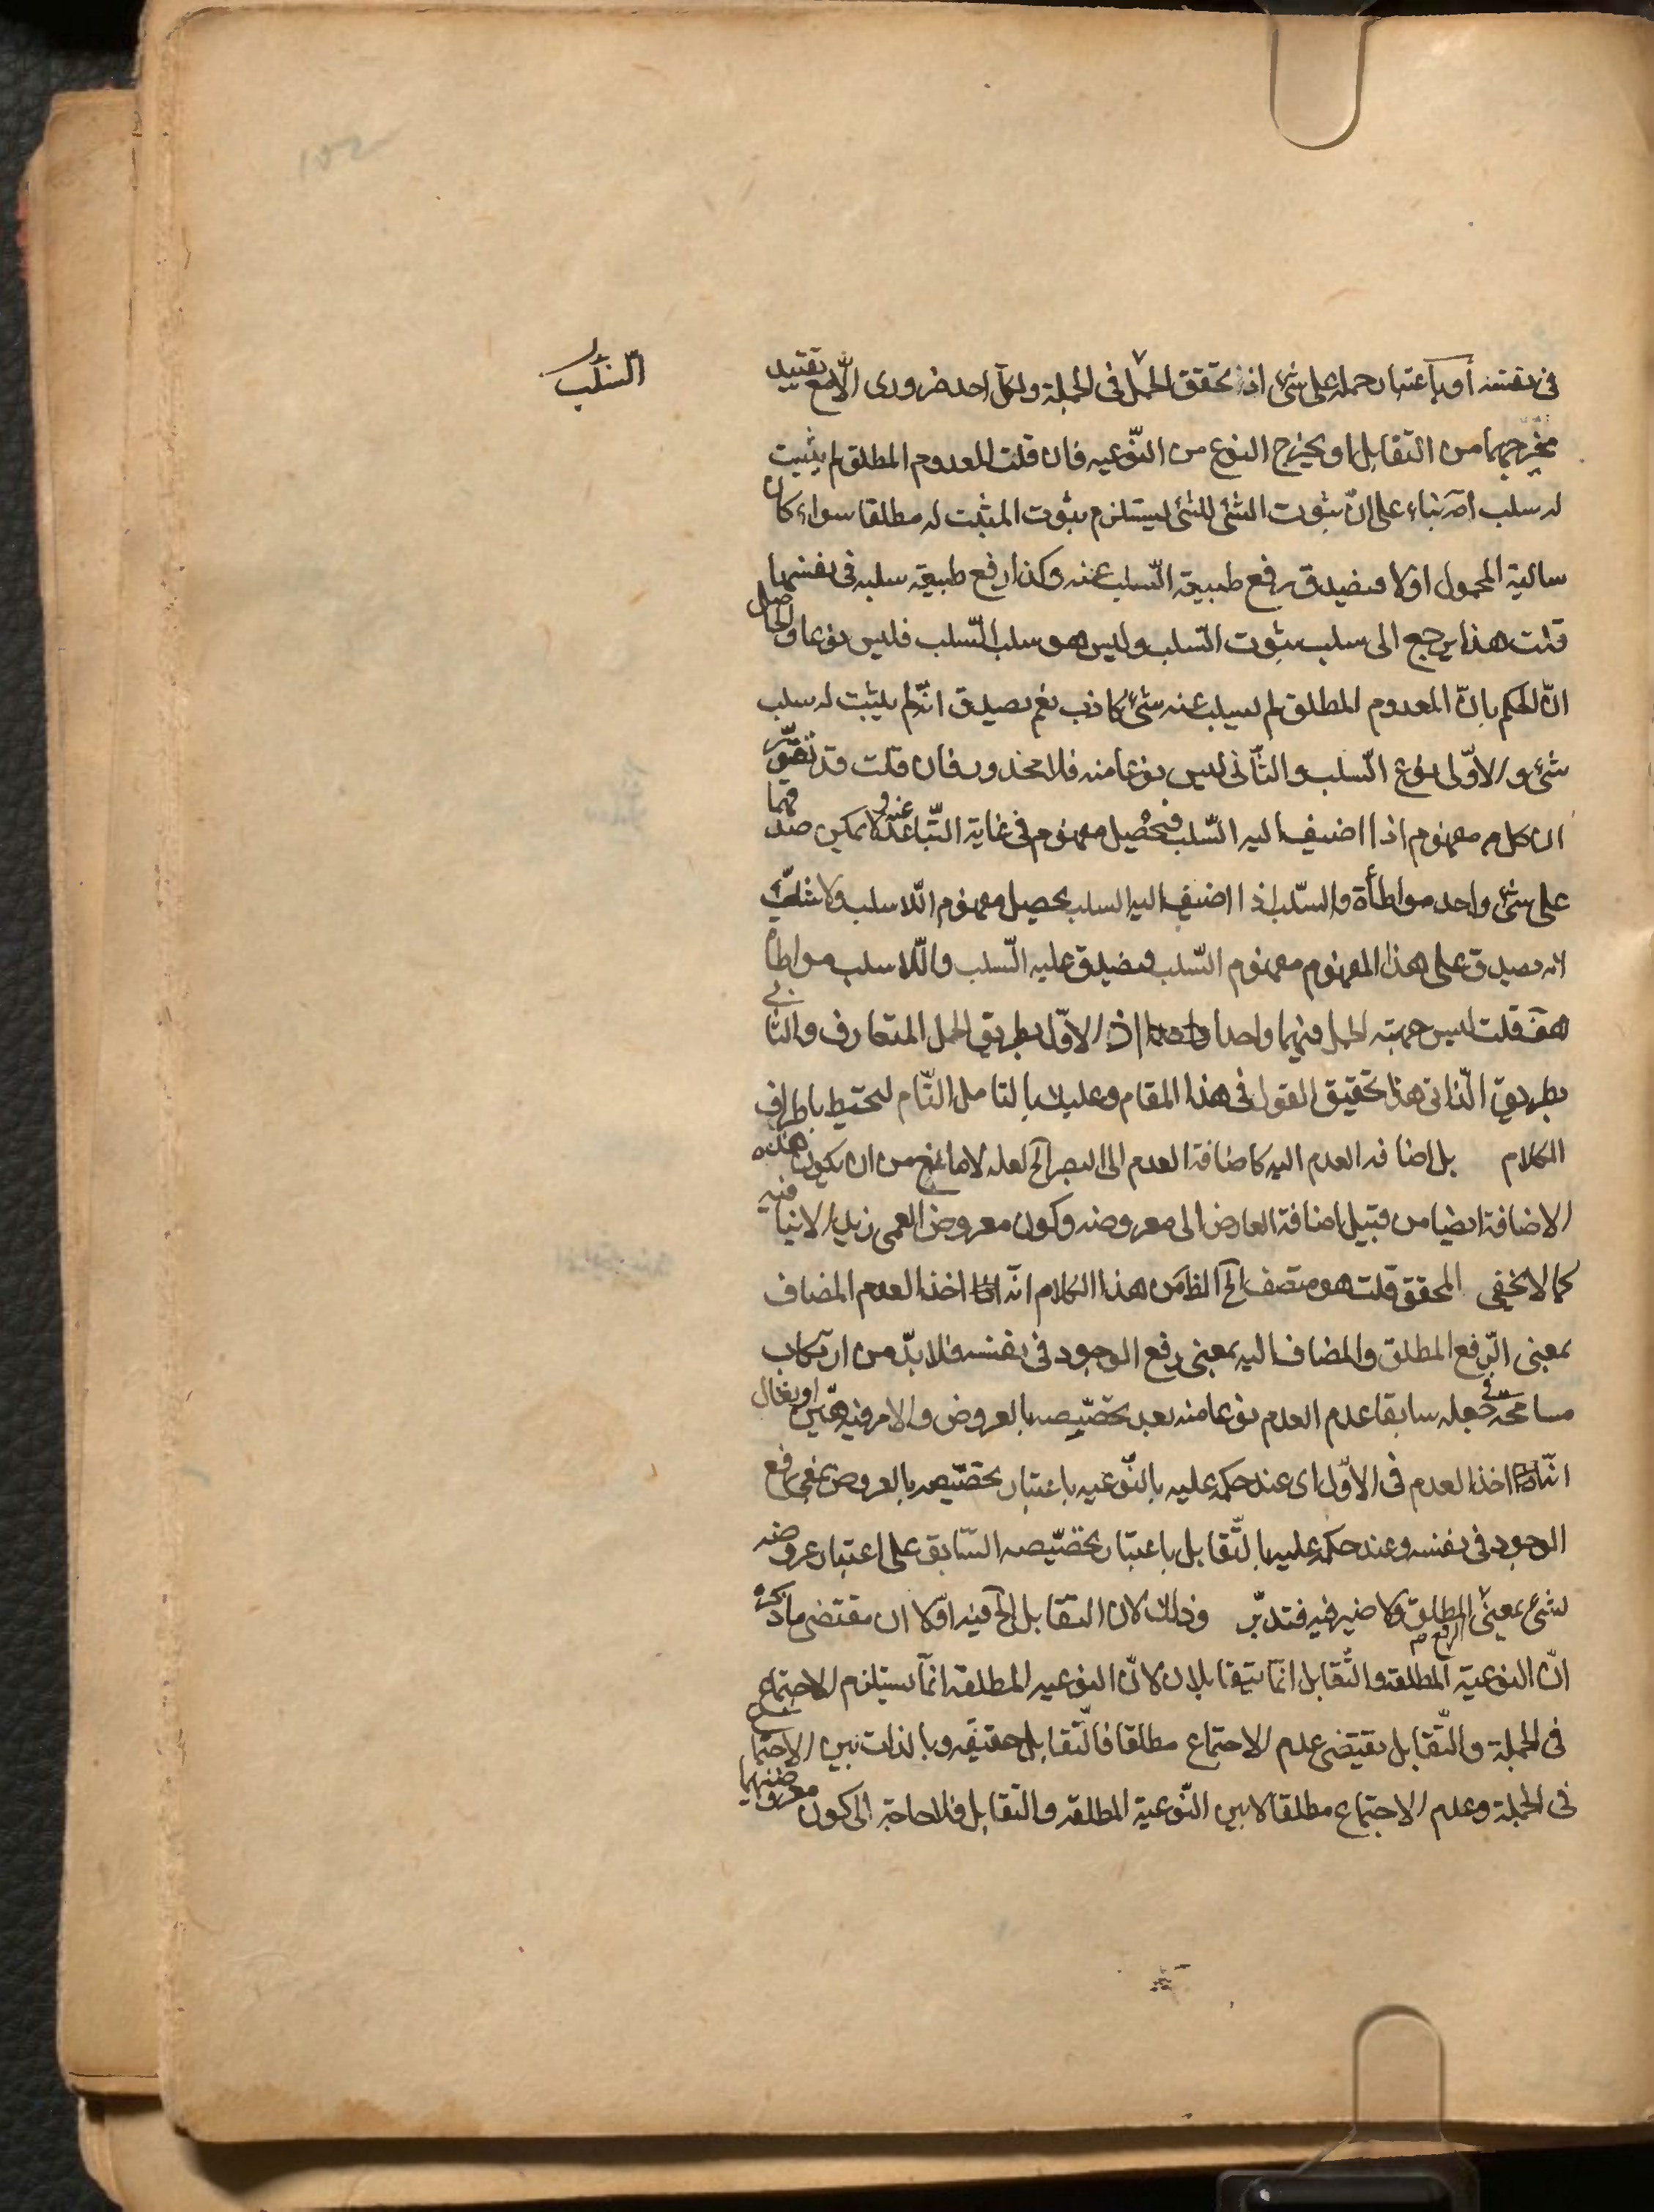 السلب
فى نفسه أو باعتبار حمله على شئ اذ تحقق الحمل فى الجملة ولكل احد ضرورى الّا مع تقييد
مخرجهما من التقابل او يخرج النوع من النّوعيه فان قلت المعدوم المطلق لم يثبت
له سلب اصّ بناء على انّ ثبوت الشئ للشئ يستلزم ثبوت المثبت له مطلقا سواء كان
سالبة المحمول او لا فيصدق رفع طبيعة السّلب عنه وكذا رفع طبيعة سلبه فى نفسها
قلت هذا يرجع الى سلب ثبوت السّلب وليس هو سلب السّلب فليس نوعا والحاصل
انّ الحكم بانّ المعدوم المطلق لم يسلب عنه شئ كاذب نعم يصدق انّه لم يثبت له سلب
شئ والاوّل نوع السّلب والثّانى ليس نوعا منه فلا محذور فان قلت قد تقرّر
ان كل مفهوم اذا اضيف اليه السّلب فيحصل مفهوم فى غاية التّباعد عنه ولا يمكن صدقهما
على شئ واحد مواطأة والسّلب اذا اضيف اليه السلب يحصل مفهوم اللّا سلب ولا شكّ
انه يصدق على هذا المفهوم مفهوم السّلب فيصدق عليه السّلب واللّا سلب مواطأة
هف قلت ليس جهة الحمل فيهما واحدا اذ الاوّل بطريق الحمل المتعارف والثانى
بطريق الذّاتى هذا تحقيق القول فى هذا المقام وعليك بالتامل التّام لتحيط باطراف
الكلام بل اضافه العدم اليه كاضافة العدم الى البصر الخ لعله لا مانع من ان يكون هذه
الاضافة ايضا من قبيل اضافة العارض الى معروضه وكون معروض العمى زيدا لا ينافيه
كما لا يخفى المحقق قلت هو متصف الخ الظ من هذا الكلام انّه اخذ العدم المضاف
بمعنى الرّفع المطلق والمضاف اليه بمعنى رفع الوجود فى نفسه فلا بدّ من ارتكاب
مسامحة فى جعله سابقا عدم العدم نوعا منه بعد تخصّيصه بالعروض والامر فيه هيّن او يقال
انّه اخذ العدم فى الاوّل اى عند حكمه عليه بالنّوعيه باعتبار تخصّيصه بالعروض بمعنى رفع
الوجود فى نفسه وعند حكمه عليه بالتّقابل باعتبار تخصّيصه السّابق على اعتبار عروضه
لشئ بمعنى الرفع المطلق ولا ضير فيه فتدبّر وذلك لان التقابل الخ فيه اوّلا ان مقتضى ما ذكره
انّ النوعية المطلقة والتّقابل انّما يتقابلان لانّ النوعيه المطلقة انّما يستلزم الاجتماع
فى الجملة والتّقابل يقتضى عدم الاجتماع مطلقا فالتّقابل حقيقه وبالذات بين الاجتماع
فى الجملة وعدم الاجتماع مطلقا لا بين النّوعية المطلقه والتقابل فلا حاجة الى كون معروضيهما